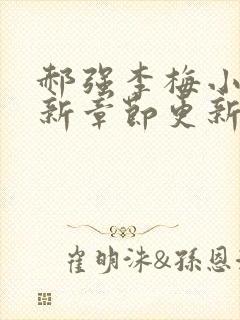 郝强李梅小
新章节更新
崔明洙&孫恩